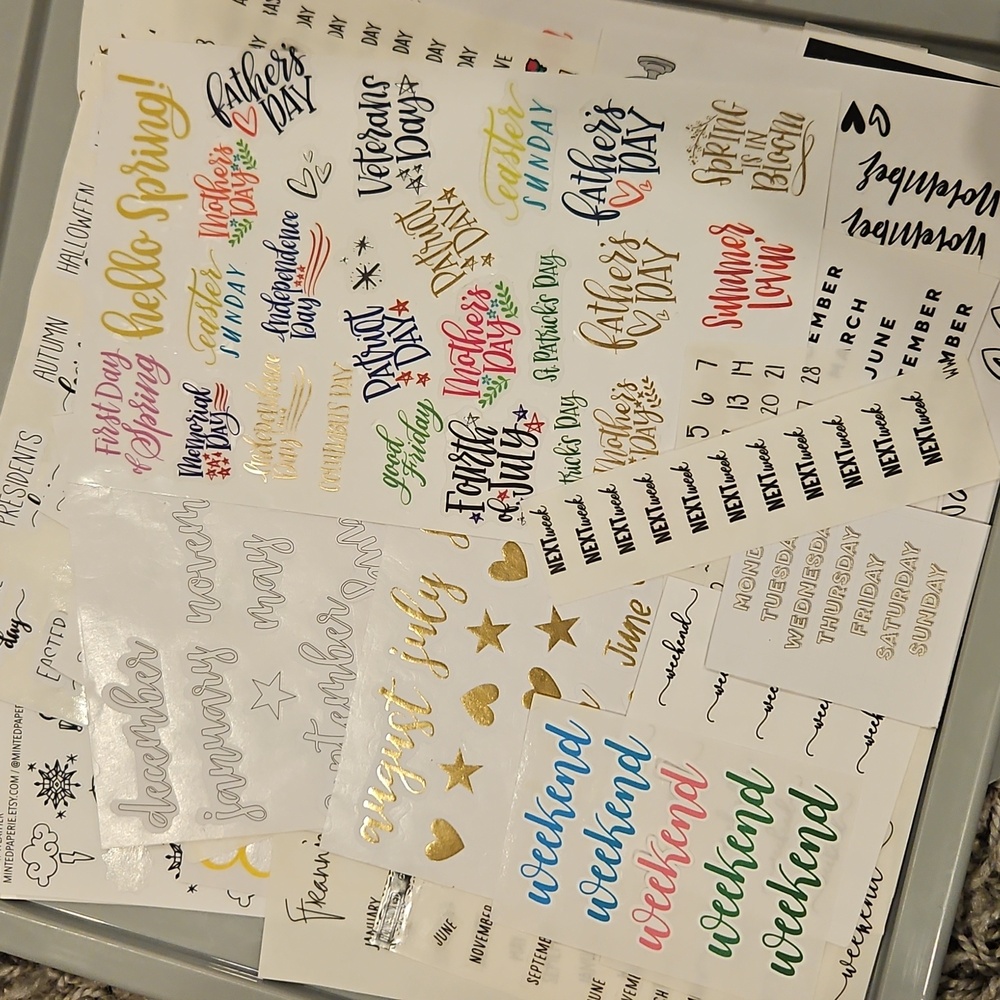 DAY
DAY
DAY
DAY
DAY
HALLOWEEN
AUTUMN
PRESIDENTS
day
hello Spring!
father's
DAY
Mother's
DAY
easter
SUNDAY
Independence
Day
First Day
of Spring
Memorial
DAY
Independence
Day
COLUMBUS DAY
Veterans
Day
Patriot
DAY
Patriot
DAY
good
Friday
easter
SUNDAY
Mother's
DAY
St. Patrick's Day
Fourth
of July
father's
DAY
father's
DAY
Mother's
DAY
SPRING
IS IN
Bloom
Summer
Lovin'
November
November
EMBER
MARCH
JUNE
TEMBER
7
14
21
28
6
13
20
5
NEXT week
NEXT week
NEXT week
NEXT week
NEXT week
NEXT week
NEXT week
NEXT week
NEXT week
NEXT week
TUESDA
WEDNESDA
THURSDAY
FRIDAY
SATURDAY
SUNDAY
december
january
novem
may
august
july
June
weekend
weekend
weekend
weekend
weekend
weekend
weekend
MINTEDPAPERIE.ETSY.COM / @MINTEDPAPER
JANUARY
JUNE
NOVEMBER
SEPTEMB